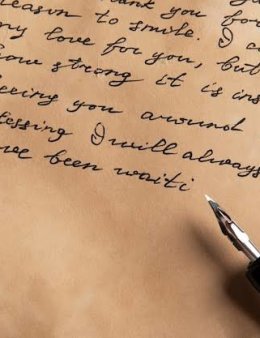 thank you for
reason to smile. I ca
my love for you, but
how strong it is ins
seeing you around
essing I will always
ve been waiti